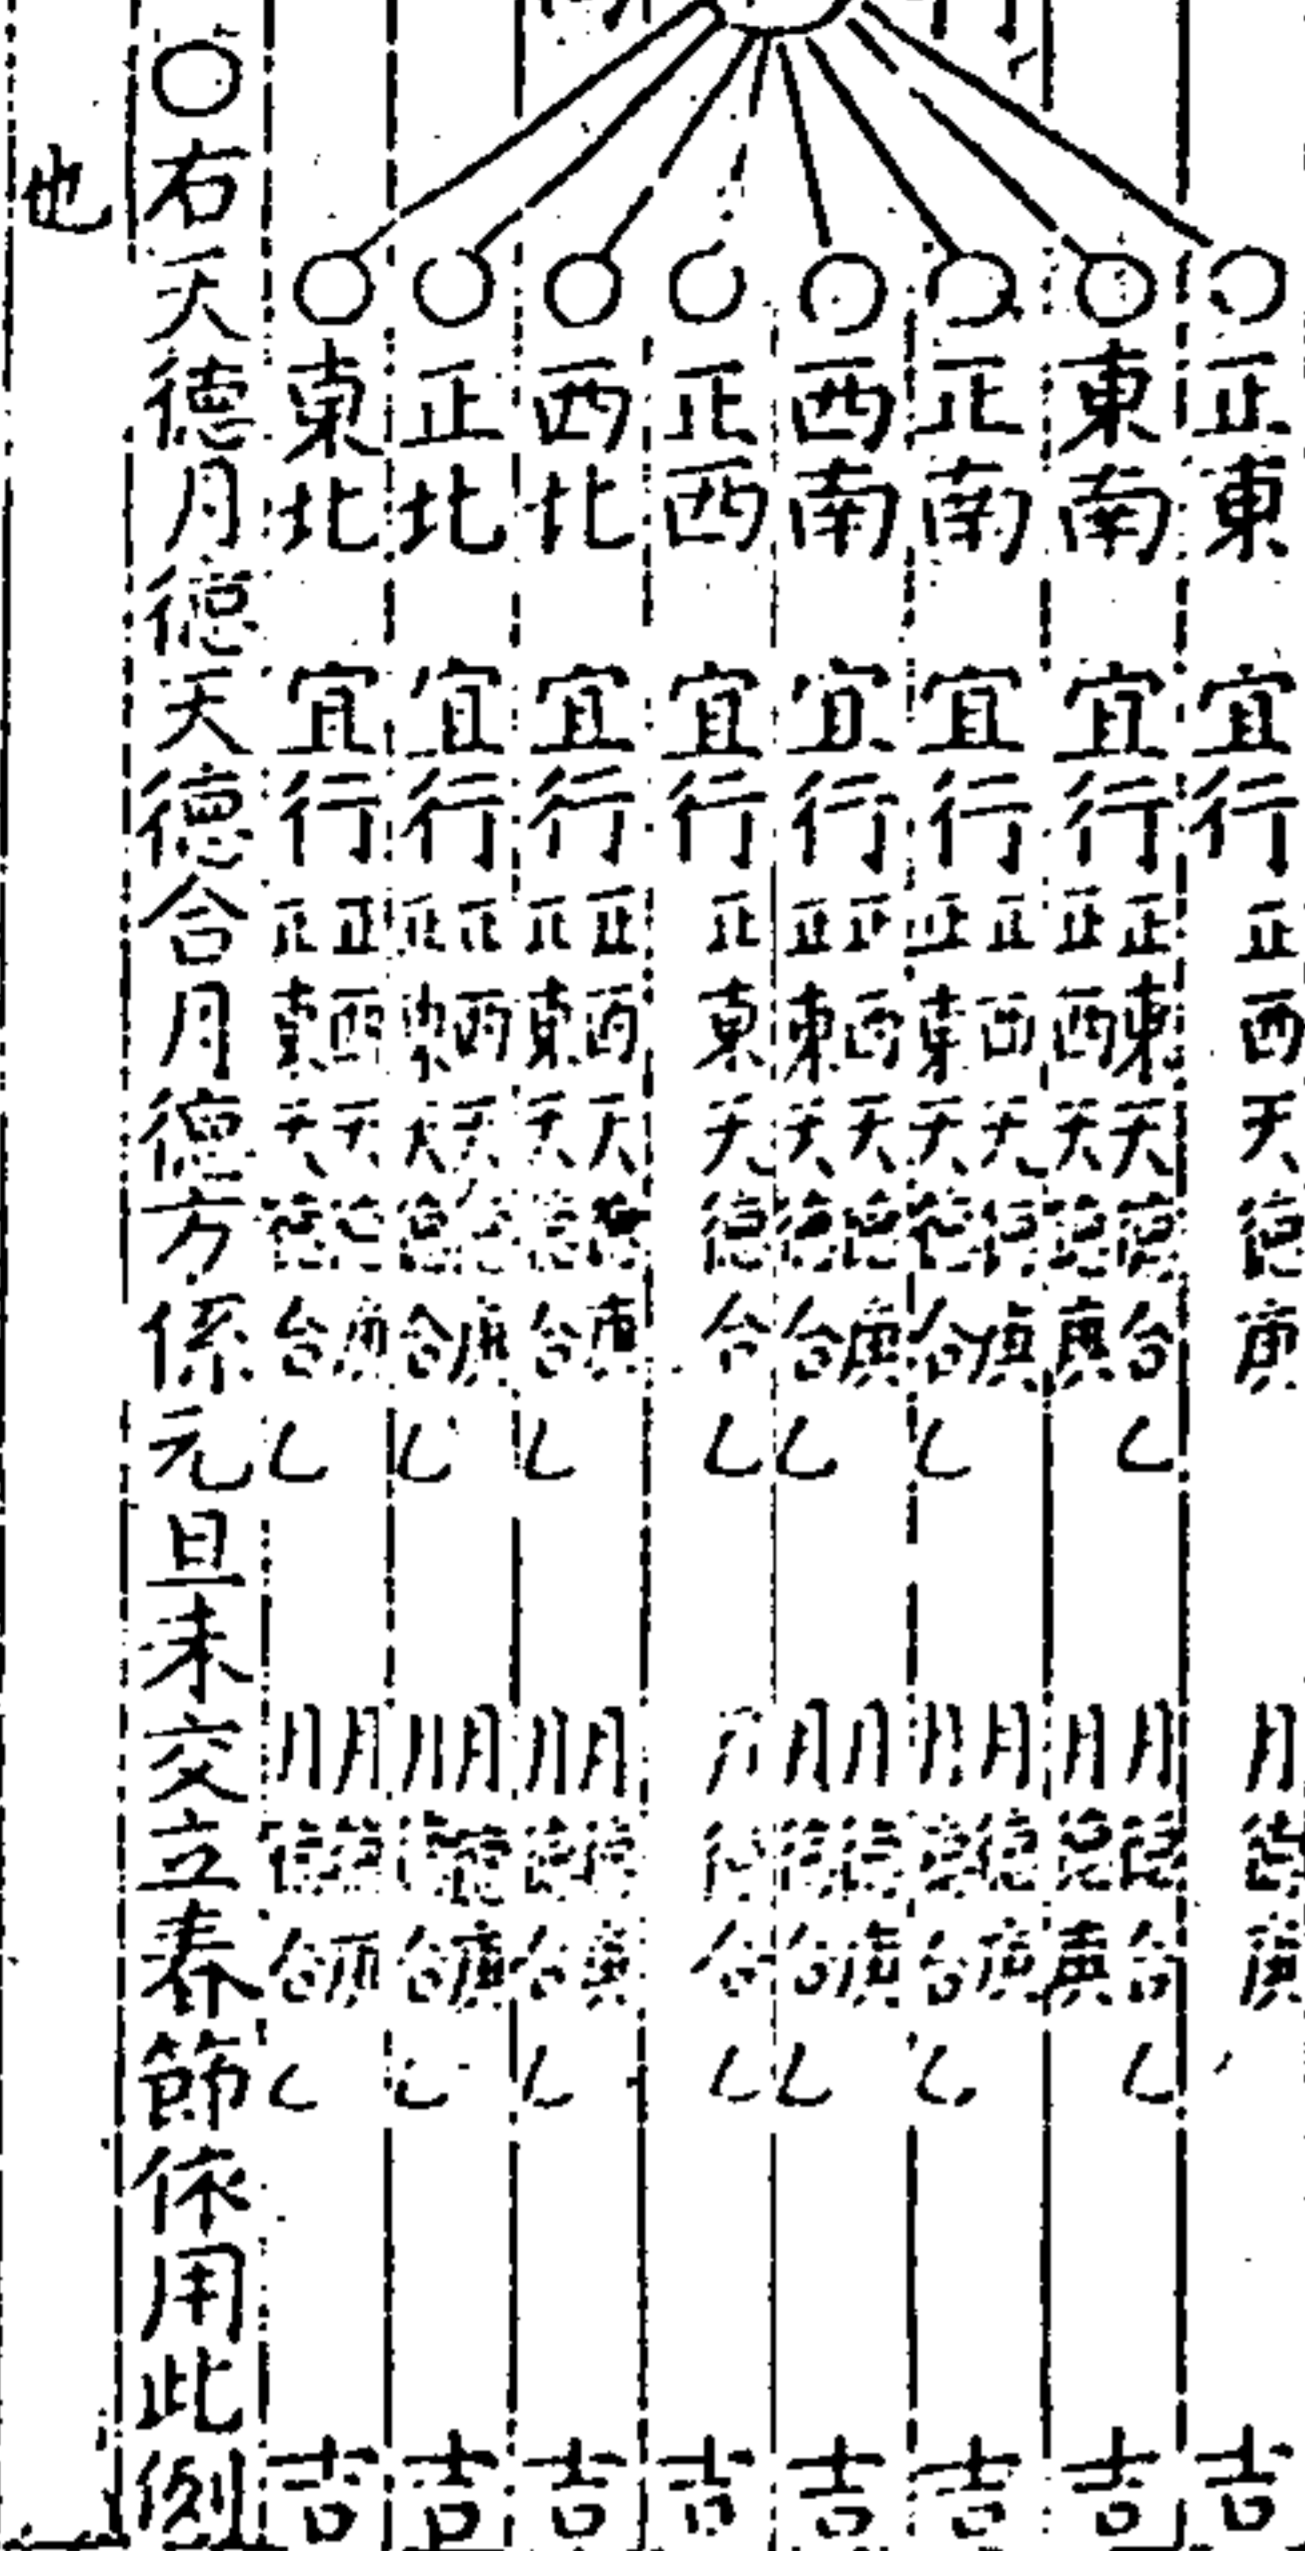 ○正東宜行正西天德庚月德庚吉
○東南宜行正東天德合乙正西天德庚月德合乙月德庚吉
○正南宜行正西天德庚正東天德合乙月德庚月德合乙吉
○西南宜行正西天德庚正東天德合乙月德庚月德合乙吉
○正西宜行正東天德合乙月德合乙吉
○西北宜行正西天德庚正東天德合乙月德庚月德合乙吉
○正北宜行正西天德庚正東天德合乙月德庚月德合乙吉
○東北宜行正西天德庚正東天德合乙月德庚月德合乙吉
○右天德月德天德合月德方係元旦未交立春節依用此例
也